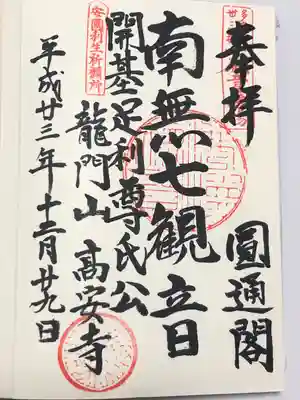 奉拝
圓通閣
南無七観立日
開基足利尊氏公
安國利生祈願所
龍門山 高安寺
平成廿三年十二月廿九日